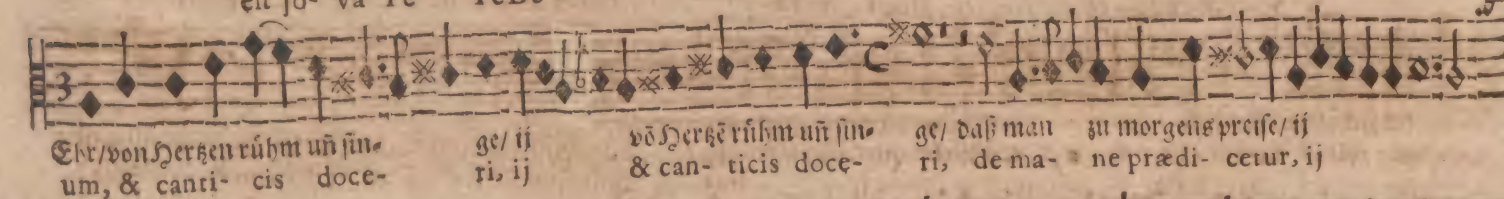 Ehr/von Hertzen rühm uñ sin- ge/ ij võ Hertzẽ rühm uñ sin- ge/ daß man zu morgens preise/ ij
um, & canti- cis doce- ri, ij & can- ticis doce- ri, de ma- ne prædi- cetur, ij